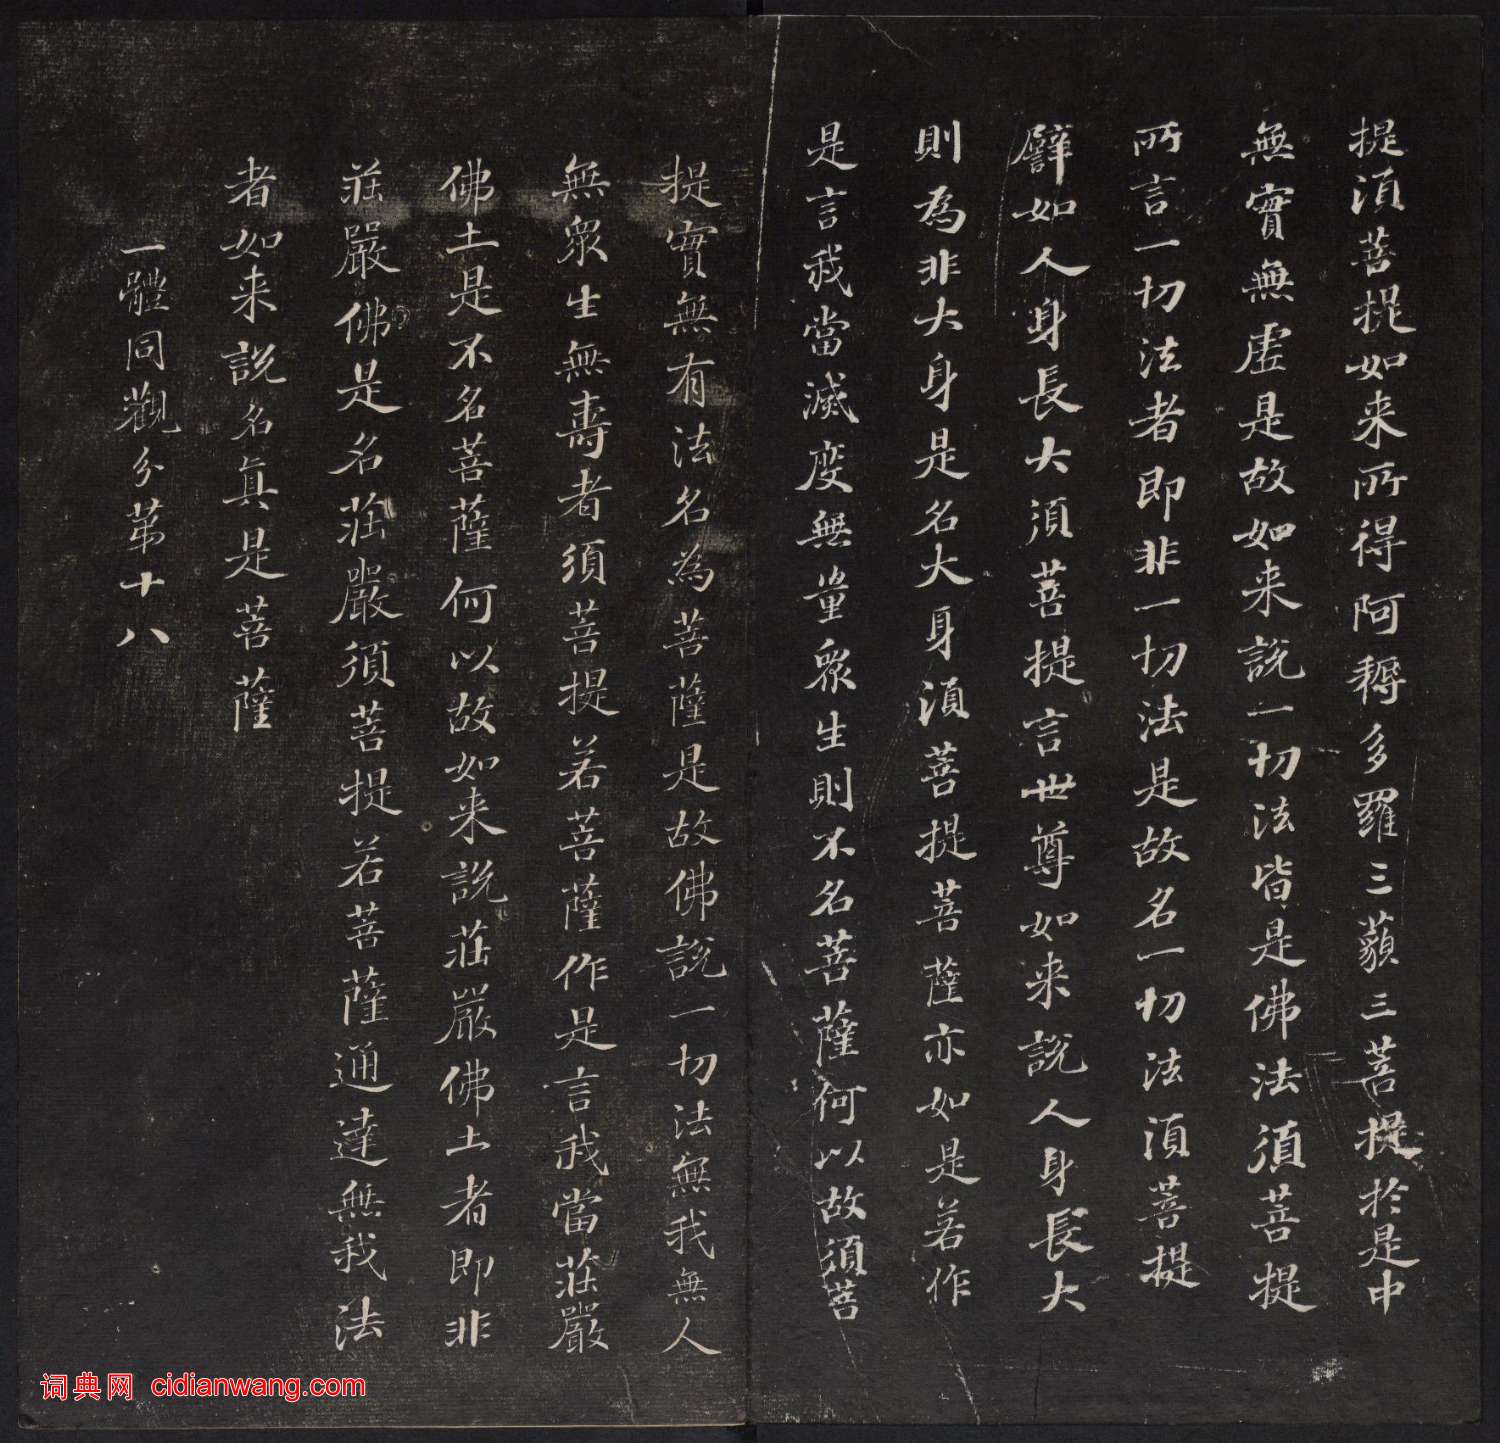 提須菩提如来所得阿耨多羅三藐三菩提於是中
無實無虛是故如来說一切法皆是佛法須菩提
所言一切法者即非一切法是故名一切法須菩提
譬如人身長大須菩提言世尊如来說人身長大
則為非大身是名大身須菩提菩薩亦如是若作
是言我當滅度無量眾生則不名菩薩何以故須菩
提實無有法名為菩薩是故佛說一切法無我無人
無眾生無壽者須菩提若菩薩作是言我當莊嚴
佛土是不名菩薩何以故如来說莊嚴佛土者即非
莊嚴佛是名莊嚴須菩提若菩薩通達無我法
者如来說名真是菩薩
一體同觀分第十八
词典网 cidianwang.com